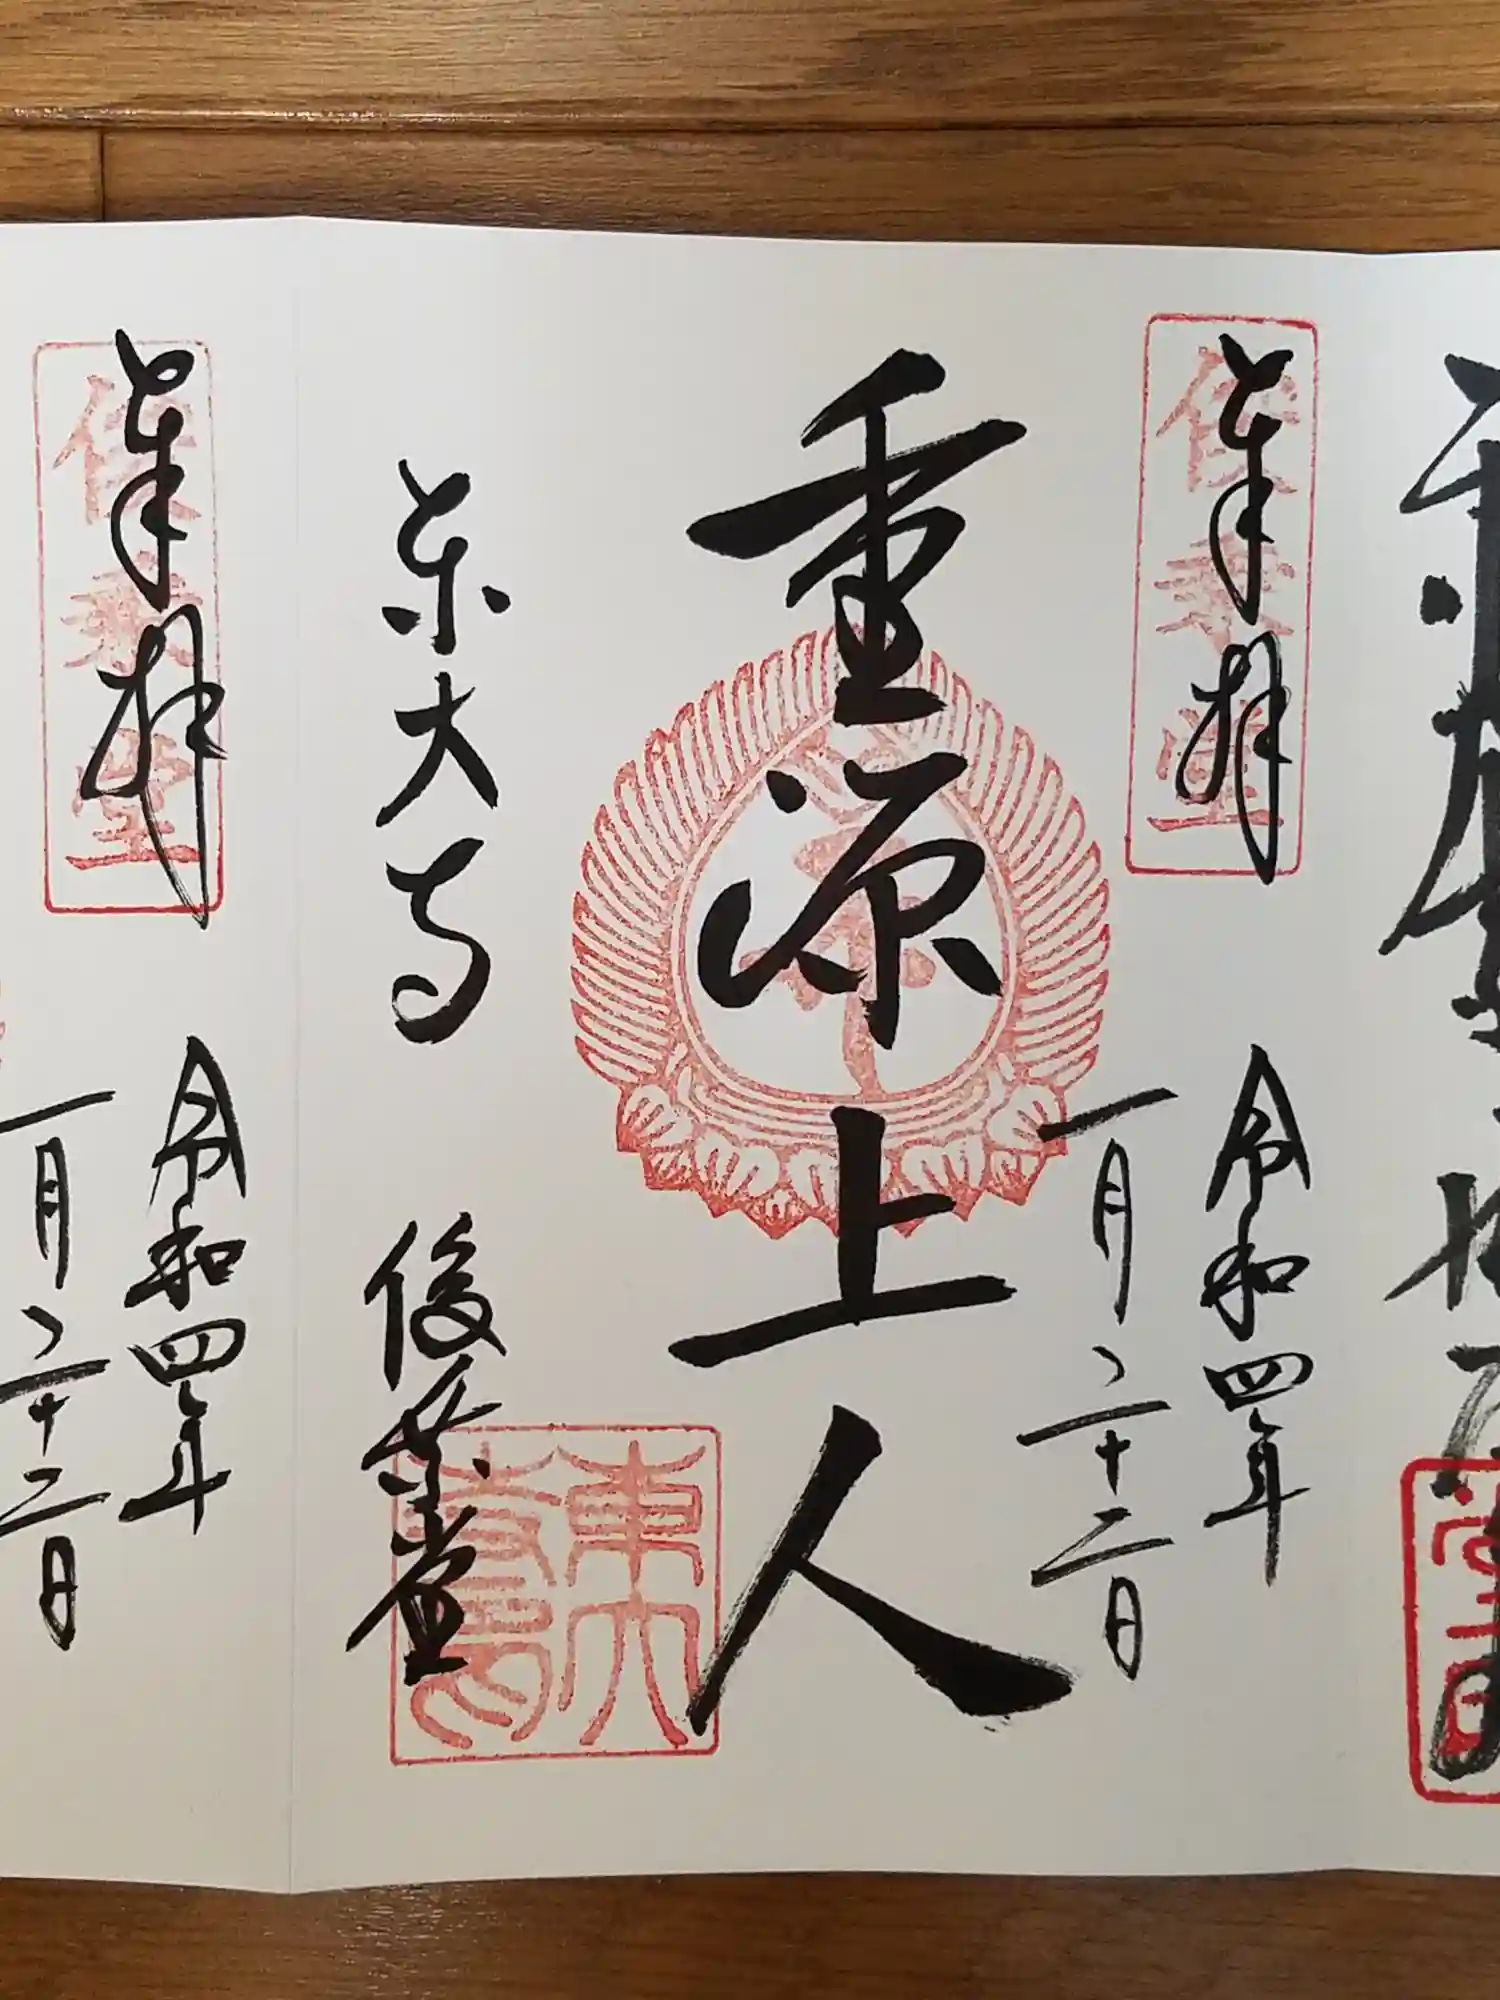 奉拝
俊乗堂
令和四年
一月二十二日
重源上人
東大寺
俊乗堂
東大寺
奉拝
俊乗堂
令和四年
一月二十二日